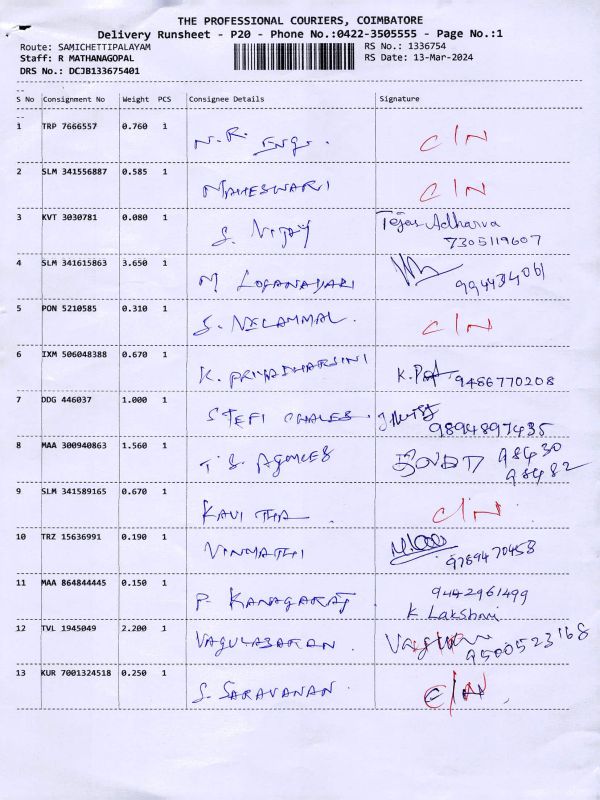 THE PROFESSIONAL COURIERS, COIMBATORE
Delivery Runsheet - P20 - Phone No.:0422-3505555 - Page No.:1
Route: SAMICHETTIPALAYAM RS No.: 1336754
Staff: R MATHANAGOPAL RS Date: 13-Mar-2024
DRS No.: DCJB133675401
S No Consignment No Weight PCS Consignee Details Signature
1 TRP 7666557 0.760 1 N.R. Eng. C/N
2 SLM 341556887 0.585 1 MAHESWARI C/N
3 KVT 3030781 0.080 1 S. VIJAY Tejas Adharva
7305119607
4 SLM 341615863 3.650 1 M LOGANAYAKI 994434061
5 PON 5210585 0.310 1 S. NILAMMAL. C/N
6 IXM 506048388 0.670 1 K. PRIYADHARSINI 9486770208
7 DDG 446037 1.000 1 STEFI CHALES. 9894897435
8 MAA 300940863 1.560 1 T.S. 98430
98482
9 SLM 341589165 0.670 1 KAVITHA C/N
10 TRZ 15636991 0.190 1 VINMATHI 9789470458
11 MAA 864844445 0.150 1 P. KANAGARAJ 9442961499
K Lakshmi
12 TVL 1945049 2.200 1 VAGULABARAN 9500523168
13 KUR 7001324518 0.250 1 S. SARAVANAN. C/N